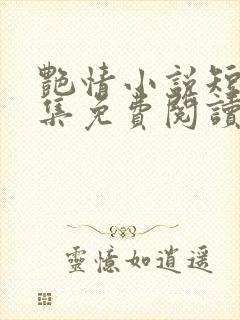 艷情小說短
集免費閱讀
靈憶如逍遥